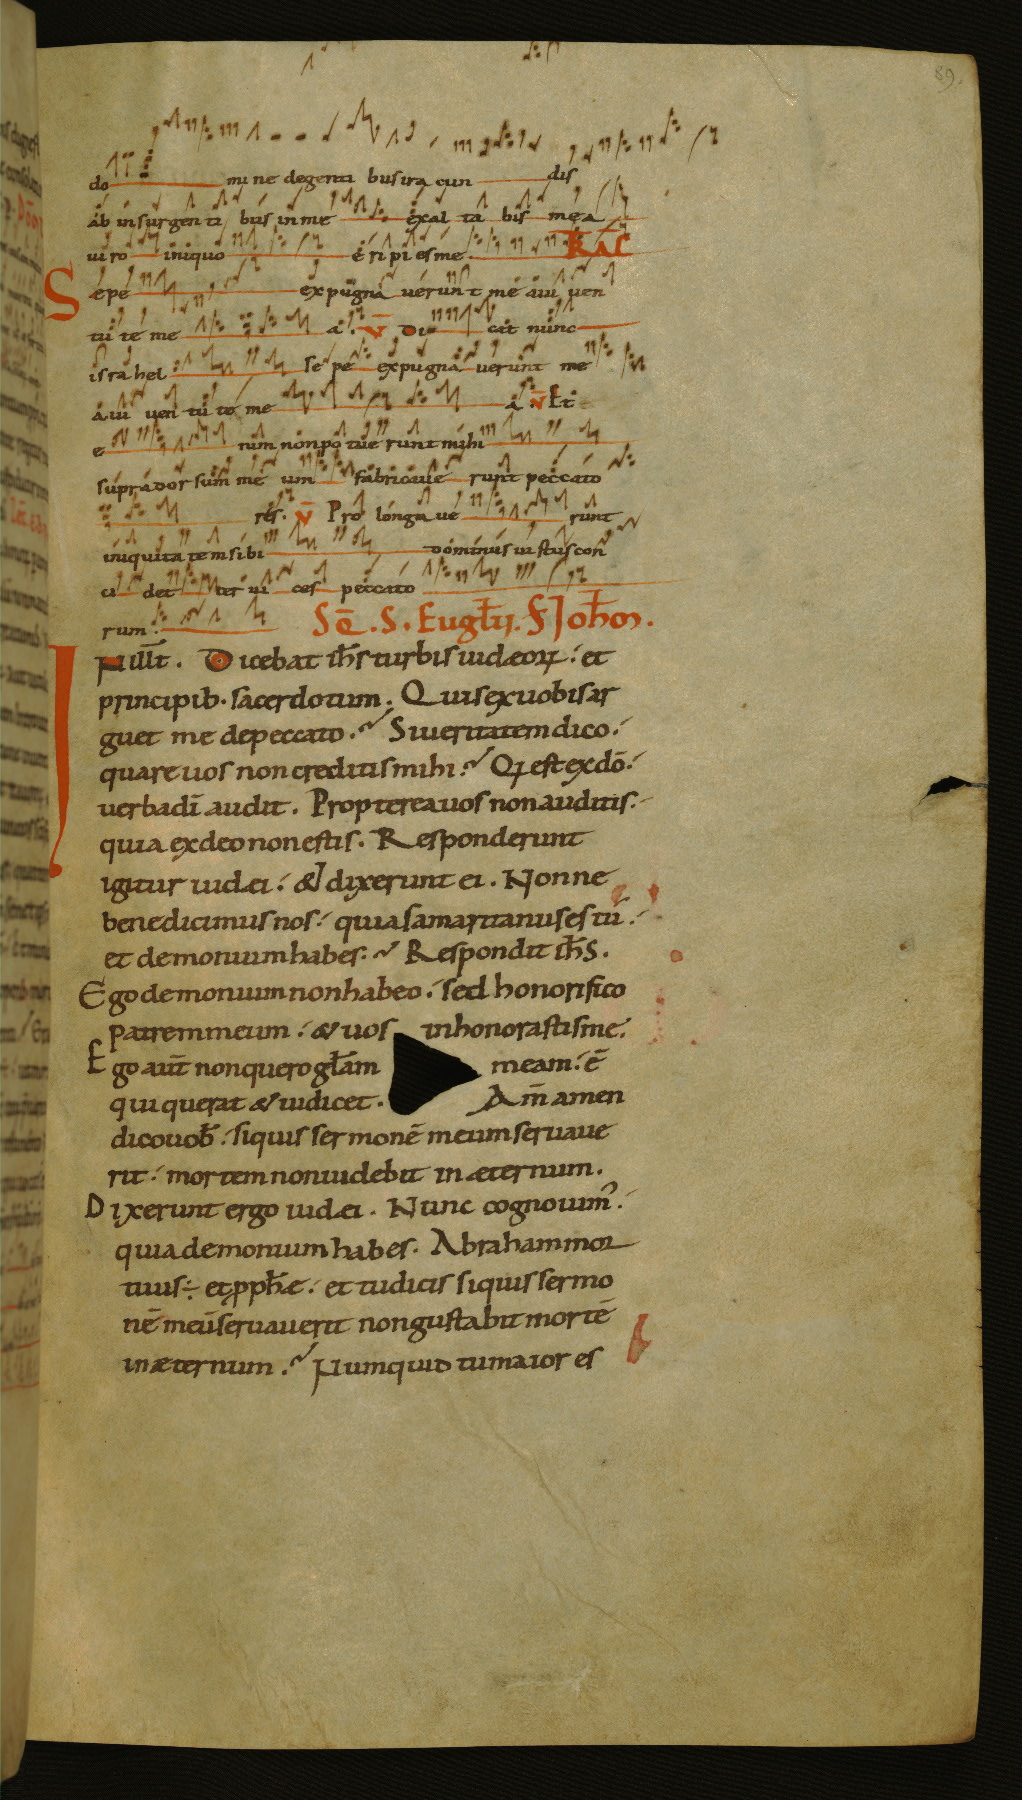 89.
do mi ne degenti bus ira cun dis
ab insurgenti bus in me exal ta bis me a
uiro iniquo eripies me. TRAC
Sepe expugna uerunt me aiuuen
tu te me a. V Di cat nunc
israhel sepe expugna uerunt me
a iuuen tu te me a. V Et
e nim non po tue runt mihi
supra dorsum me um fabricaue runt peccato
res. V Prolonga ue runt
iniquitatem sibi dominus iustus con
ci det ceruices peccato
rum. SEQ. S. Eugłii. S Johem.
IN illt. Dicebat ihs turbis iudæorꝝ. et
principib. sacerdotum. Quis ex uobis ar
guet me de peccato. Si ueritatem dico.
quare uos non creditis mihi. Qꝫ est ex dō.
uerba dī audit. Propterea uos non auditis.
quia ex deo non estis. Responderunt
igitur iudæi. & dixerunt ei. Nonne
bene dicimus nos. quia samaritanus es tu.
et demonium habes. Respondit ihs.
Ego demonium non habeo. sed honorifico
patrem meum. & uos inhonorastis me.
Ego aut non quero głam meam. ē
qui querat & iudicet. Am amen
dico uob. siquis sermonē meum seruaue
rit. mortem non uidebit in æternum.
Dixerunt ergo iudæi. Nunc cognouim.
quia demonium habes. Abraham mor
tuus÷ et ꝓphæ. et tu dicis siquis sermo
nē meū seruauerit non gustabit mortē
in æternum. Numquid tu maior es